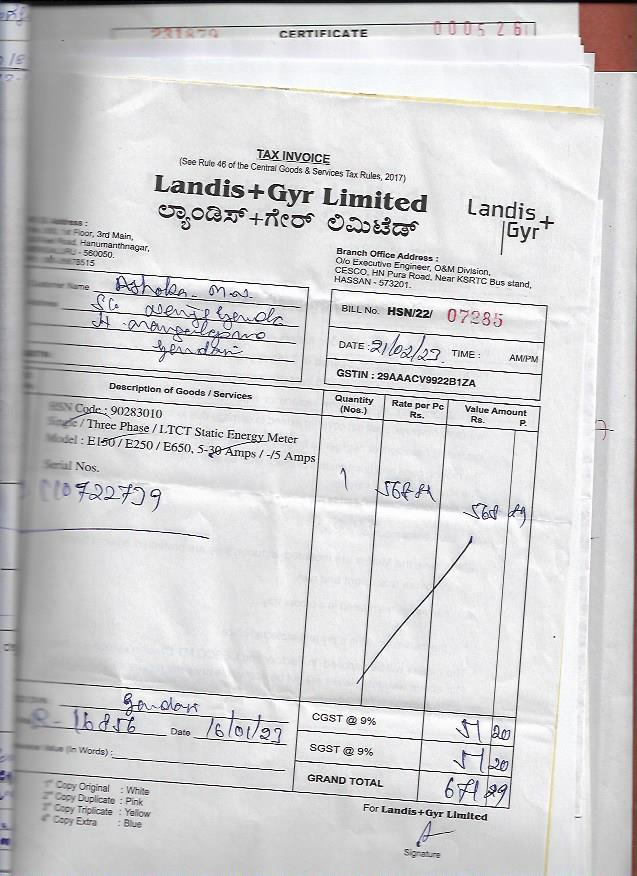 231879 CERTIFICATE 000526
TAX INVOICE
(See Rule 46 of the Central Goods & Services Tax Rules, 2017)
Landis+Gyr Limited
ಲ್ಯಾಂಡಿಸ್+ಗೇರ್ ಲಿಮಿಟೆಡ್
Landis+
Gyr
Address :
Floor, 3rd Main,
Road, Hanumanthnagar,
- 560050.
Branch Office Address :
O/o Executive Engineer, O&M Division,
CESCO, HN Pura Road, Near KSRTC Bus stand,
HASSAN - 573201.
Customer Name Ashoka
BILL No. HSN/22/ 07285
DATE : 21/02/23 TIME : AM/PM
GSTIN : 29AAACV9922B1ZA
Description of Goods / Services
Quantity (Nos.)
Rate per Pc Rs.
Value Amount Rs. P.
HSN Code : 90283010
Single / Three Phase / LTCT Static Energy Meter
Model : E150 / E250 / E650, 5-30 Amps / -/5 Amps
Serial Nos.
1
568
Gendari
16856 Date 16/01/23
Value (In Words) :
CGST @ 9% 51 20
SGST @ 9% 51 20
GRAND TOTAL 671 29
1st Copy Original : White
2nd Copy Duplicate : Pink
3rd Copy Triplicate : Yellow
4th Copy Extra : Blue
For Landis+Gyr Limited
Signature